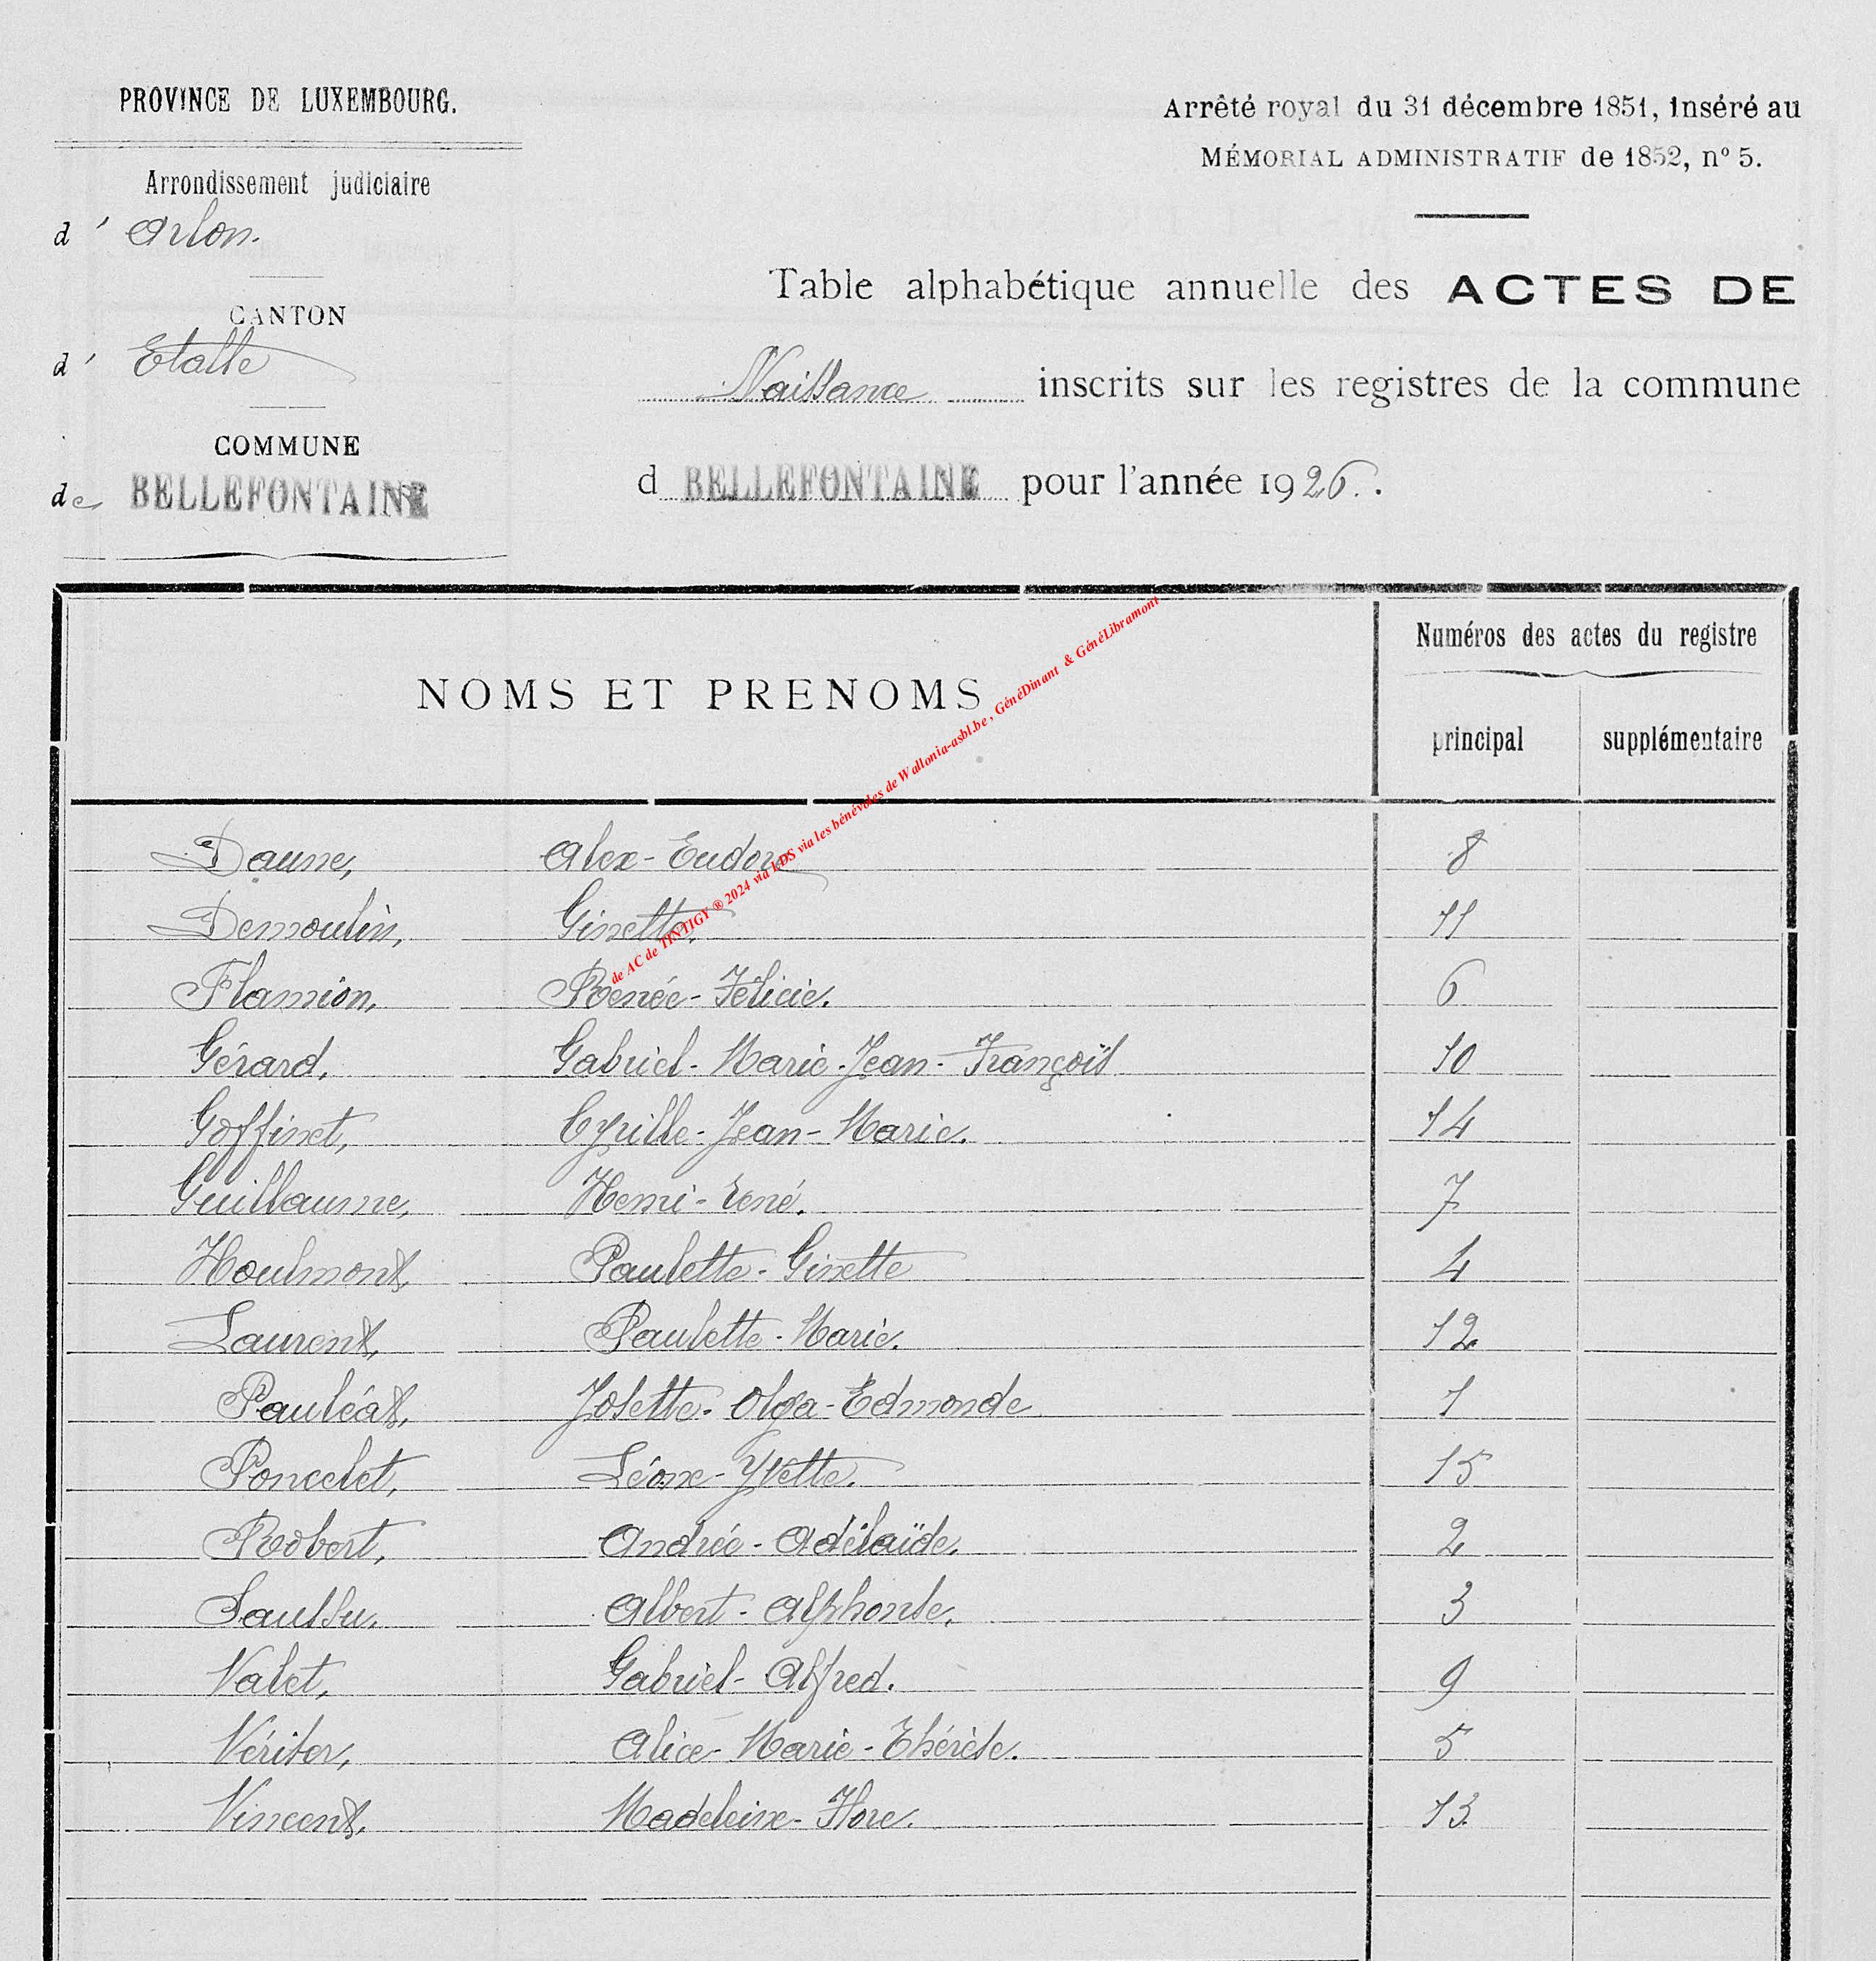 PROVINCE DE LUXEMBOURG.
Arrondissement judiciaire
d' Arlon.
CANTON
d' Etalle
COMMUNE
de BELLEFONTAINE
Arrêté royal du 31 décembre 1851, inséré au
MÉMORIAL ADMINISTRATIF de 1852, nº 5.
Table alphabétique annuelle des ACTES DE
Naissance inscrits sur les registres de la commune
d BELLEFONTAINE pour l'année 1926.
NOMS ET PRENOMS
Numéros des actes du registre
principal supplémentaire
de AC de TINTIGY ® 2024 via LDS via les bénévoles de Wallonia-asbl.be , GénéDinant & GénéLibramont
Daune, Alex-Eudore 8
Demoulin, Ginette. 11
Flamion, Renée-Félicie. 6
Gérard, Gabriel-Marie-Jean-François 10
Goffinet, Cyrille-Jean-Marie. 14
Guillaume, Henri-René. 7
Houlmont, Paulette-Ginette 4
Laurent, Paulette-Marie. 12
Pauléat, Josette-Olga-Edmonde 1
Poncelet, Léone-Yvette. 15
Robert, Andrée-Adélaïde. 2
Saussu, Albert-Alphonse. 3
Valet, Gabriel-Alfred. 9
Vériter, Alice-Marie-Thérèse. 5
Vincent, Madeleine-Flore. 13